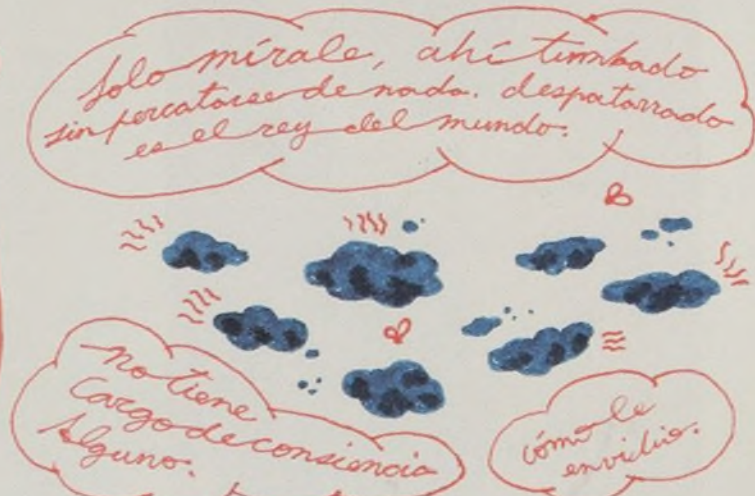 Solo mírale, ahí tumbado
sin percatarse de nada. despatarrado
es el rey del mundo.
no tiene
cargo de consiencia
alguno.
cómo le
envidio.